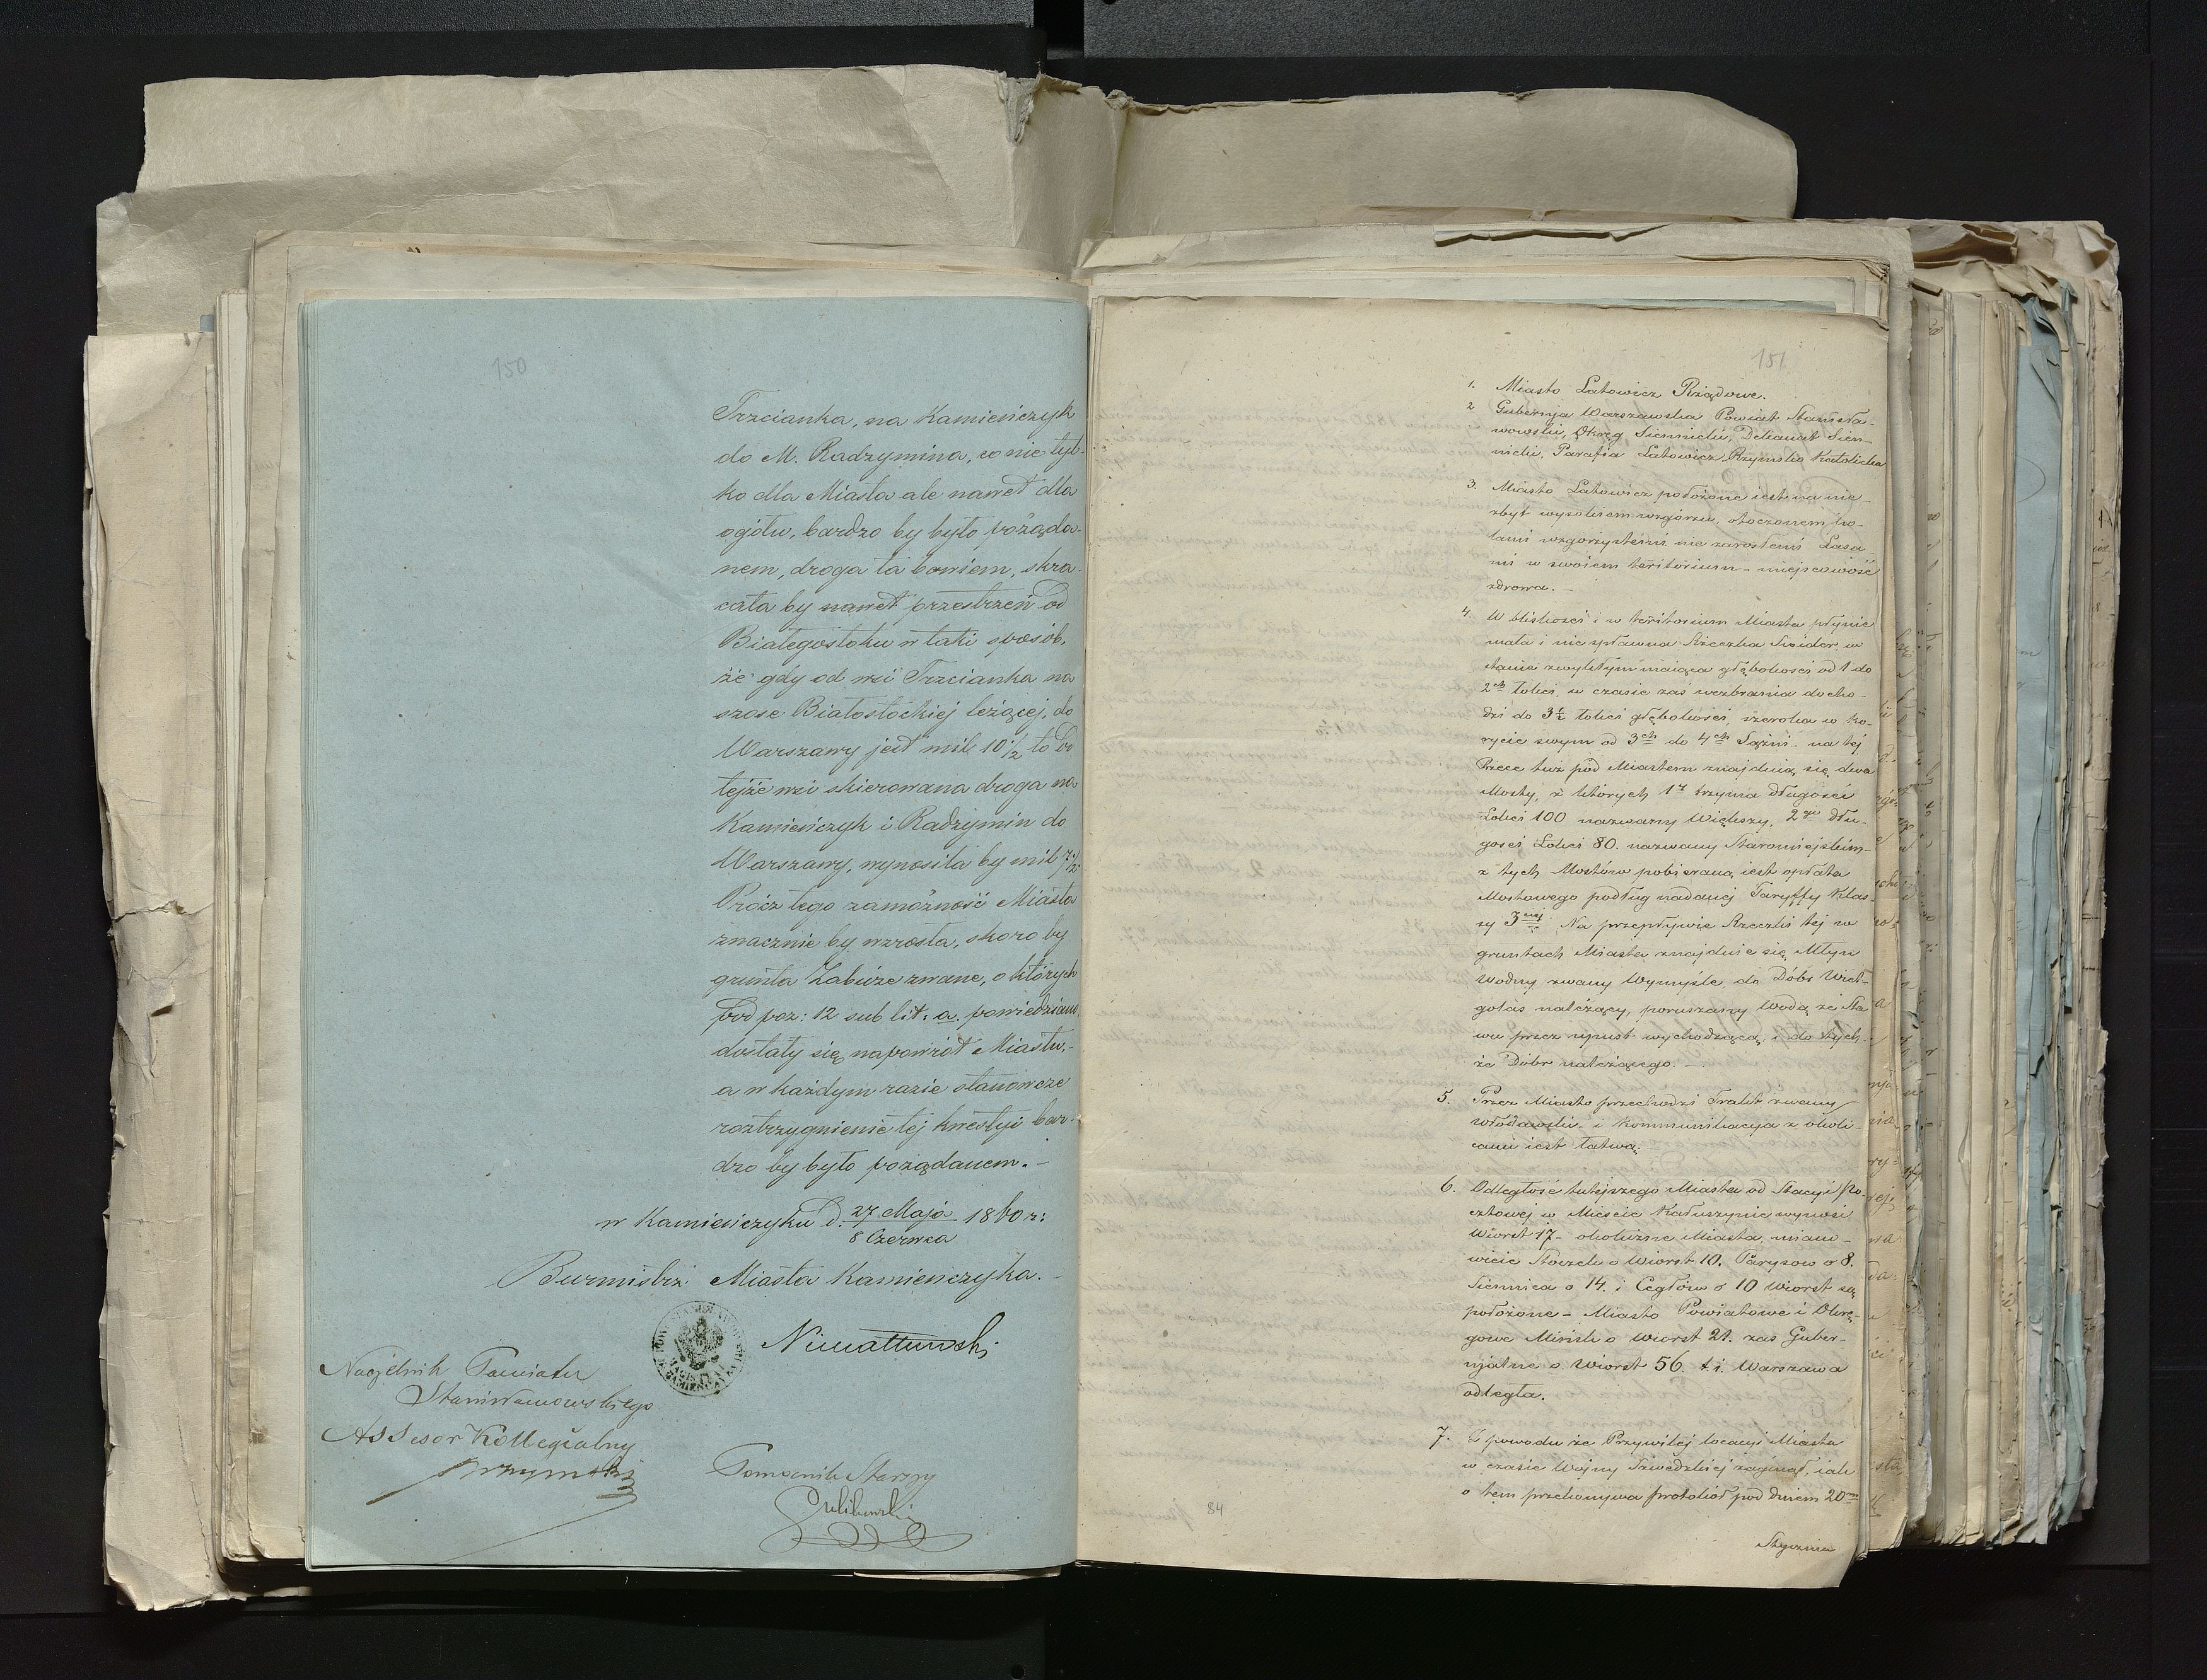 150
Trzcianka, na Kamieńczyk
do M. Radzymina, co nie tyl-
ko dla Miasta ale nawet dla
ogółu, bardzo by było pożąda-
nem, droga ta bowiem, skra-
cała by nawet przestrzeń od
Białegostoku w taki sposób,
że gdy od wsi Trzcianka na
szose Białostockiej leżącej, do
Warszawy jest mil 10 1/2 to od
tejże wsi skierowana droga na
Kamieńczyk i Radzymin do
Warszawy, wynosiła by mil 7 1/2
Prócz tego zamożność Miasta
znacznie by wzrosła, skoro by
grunta Zabuże zwane, o których
pod poz: 12 sub lit. a. powiedziano,
dostały się napowrót Miastu,-
a w każdym razie stanowcze
roztrzygnienie tej kwestyi bar-
dzo by było pożądanem.-
w Kamieńczyku d. 27 Maja 1860 r:
8 Czerwca
Burmistrz Miasta Kamieńczyka.-
Naczelnik Powiatu
Stanisławowskiego
Assesor Kollegialny
Pomocnik Starszy
151
1. Miasto Latowicz Rządowe.
2 Gubernja Warszawska Powiat Stanisła-
wowski, Okręg Siennicki, Dekanat Sien-
nicki, Parafia Latowicz Rzymsko Katolicka
3. Miasto Latowicz położone iest na nie
zbyt wysokiem wzgórzu, otoczonem po-
lami wzgorzystemi nie zarosłemi Lasa-
mi w swoiem teritorium - miejscowość
zdrowa.-
4. W bliskości i w teritorium Miasta płynie
mała i nie spławna Rzeczka Świder, w
stanie zwykłym maiąca głębokości od 1 do
2ch łokci, w czasie zaś wezbrania docho-
dzi do 3 1/2 łokci głębokości, szeroka w ko-
rycie swym od 3ch do 4ch Sążni - na tej
Rzece tuż pod Miastem znajduią się dwa
Mosty, z których 1y trzyma długości
Łokci 100 nazwany Większy, 2gi dłu-
gości Łokci 80. nazwany Staromiejskim-
z tych Mostów pobieraną iest opłata
Mostowego podług nadanej Taryffy Klas-
sy 3ciej. Na przepływie Rzeczki tej w
gruntach Miasta znajduie się Młyn
wodny zwany Wymyśle do Dóbr Wiel-
golas należący, poruszany Wodą ze Sta
wu przez upust wychodzącą, i do tych-
że Dóbr należącego.-
5. Przez Miasto przechodzi Trakt zwany
włodawski i kommunikacyja z okoli-
cami iest łatwą.-
6. Odległość tutejszego Miasta od Stacyi po-
cztowej w Mieście Kałuszynie wynosi
Wiorst 17- okoliczne Miasta, miano-
wicie Stoczek o Wiorst 10. Parysow o 8.
Siennica o 14. i Cegłów o 10 Wiorst są
położone - Miasto Powiatowe i Okrę-
gowe Mińsk o Wiorst 21. zaś Guber-
njalne o wiorst 56. t. i. Warszawa
odległa.
7. Z powodu że Przywilej locacyi Miasta
w czasie Wojny Szwedzkiej zaginął, iak
o tem przekonywa protokół pod dniem 20m
Stycznia
84